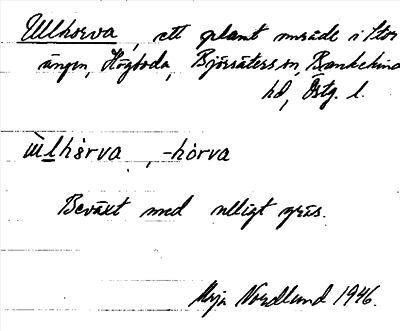 Ullhorva, ett plant område i Stor
ängen, Högboda, Björsäters sn, Bankekind
hd, Östg. l.
ùlhòrva, -hòrva
Beväxt med ulligt gräs.
Nordlund 1946.